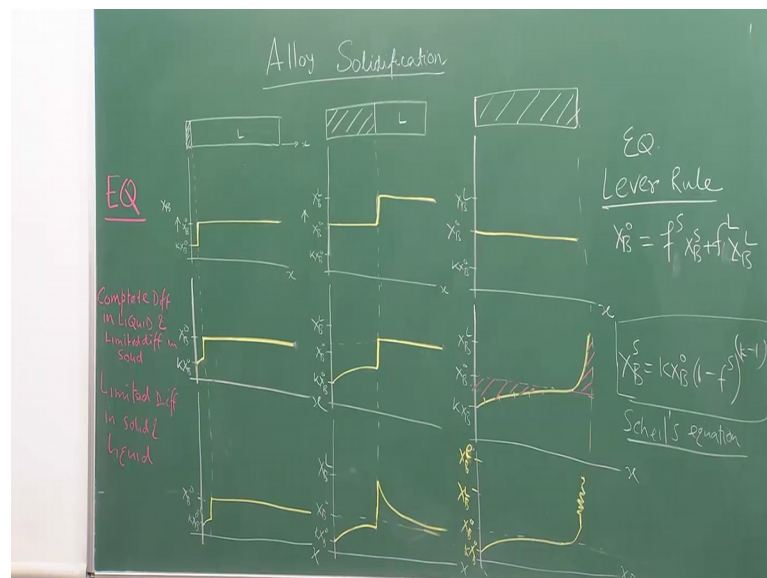 Alloy Solidification
L
→ x
L
EQ
X_B
↑ X_B^o
KX_B^o
x
X_B^L
↑ X_B^o
KX_B^o
x
X_B^L
X_B^o
KX_B^o
x
EQ
Lever Rule
X_B^o = f^S X_B^S + f^L X_B^L
Complete Diff
in Liquid &
Limited diff in
Solid
X_B^o
KX_B^o
x
X_B^L
X_B^o
KX_B^o
x
X_B^L
X_B^o
KX_B^o
x
X_B^S = KX_B^o (1 - f^S)^(k-1)
Scheil's equation
Limited Diff
in solid &
Liquid
X_B^o
KX_B^o
x
X_B^L
X_B^o
KX_B^o
x
X_B^L
X_B^o
KX_B^o